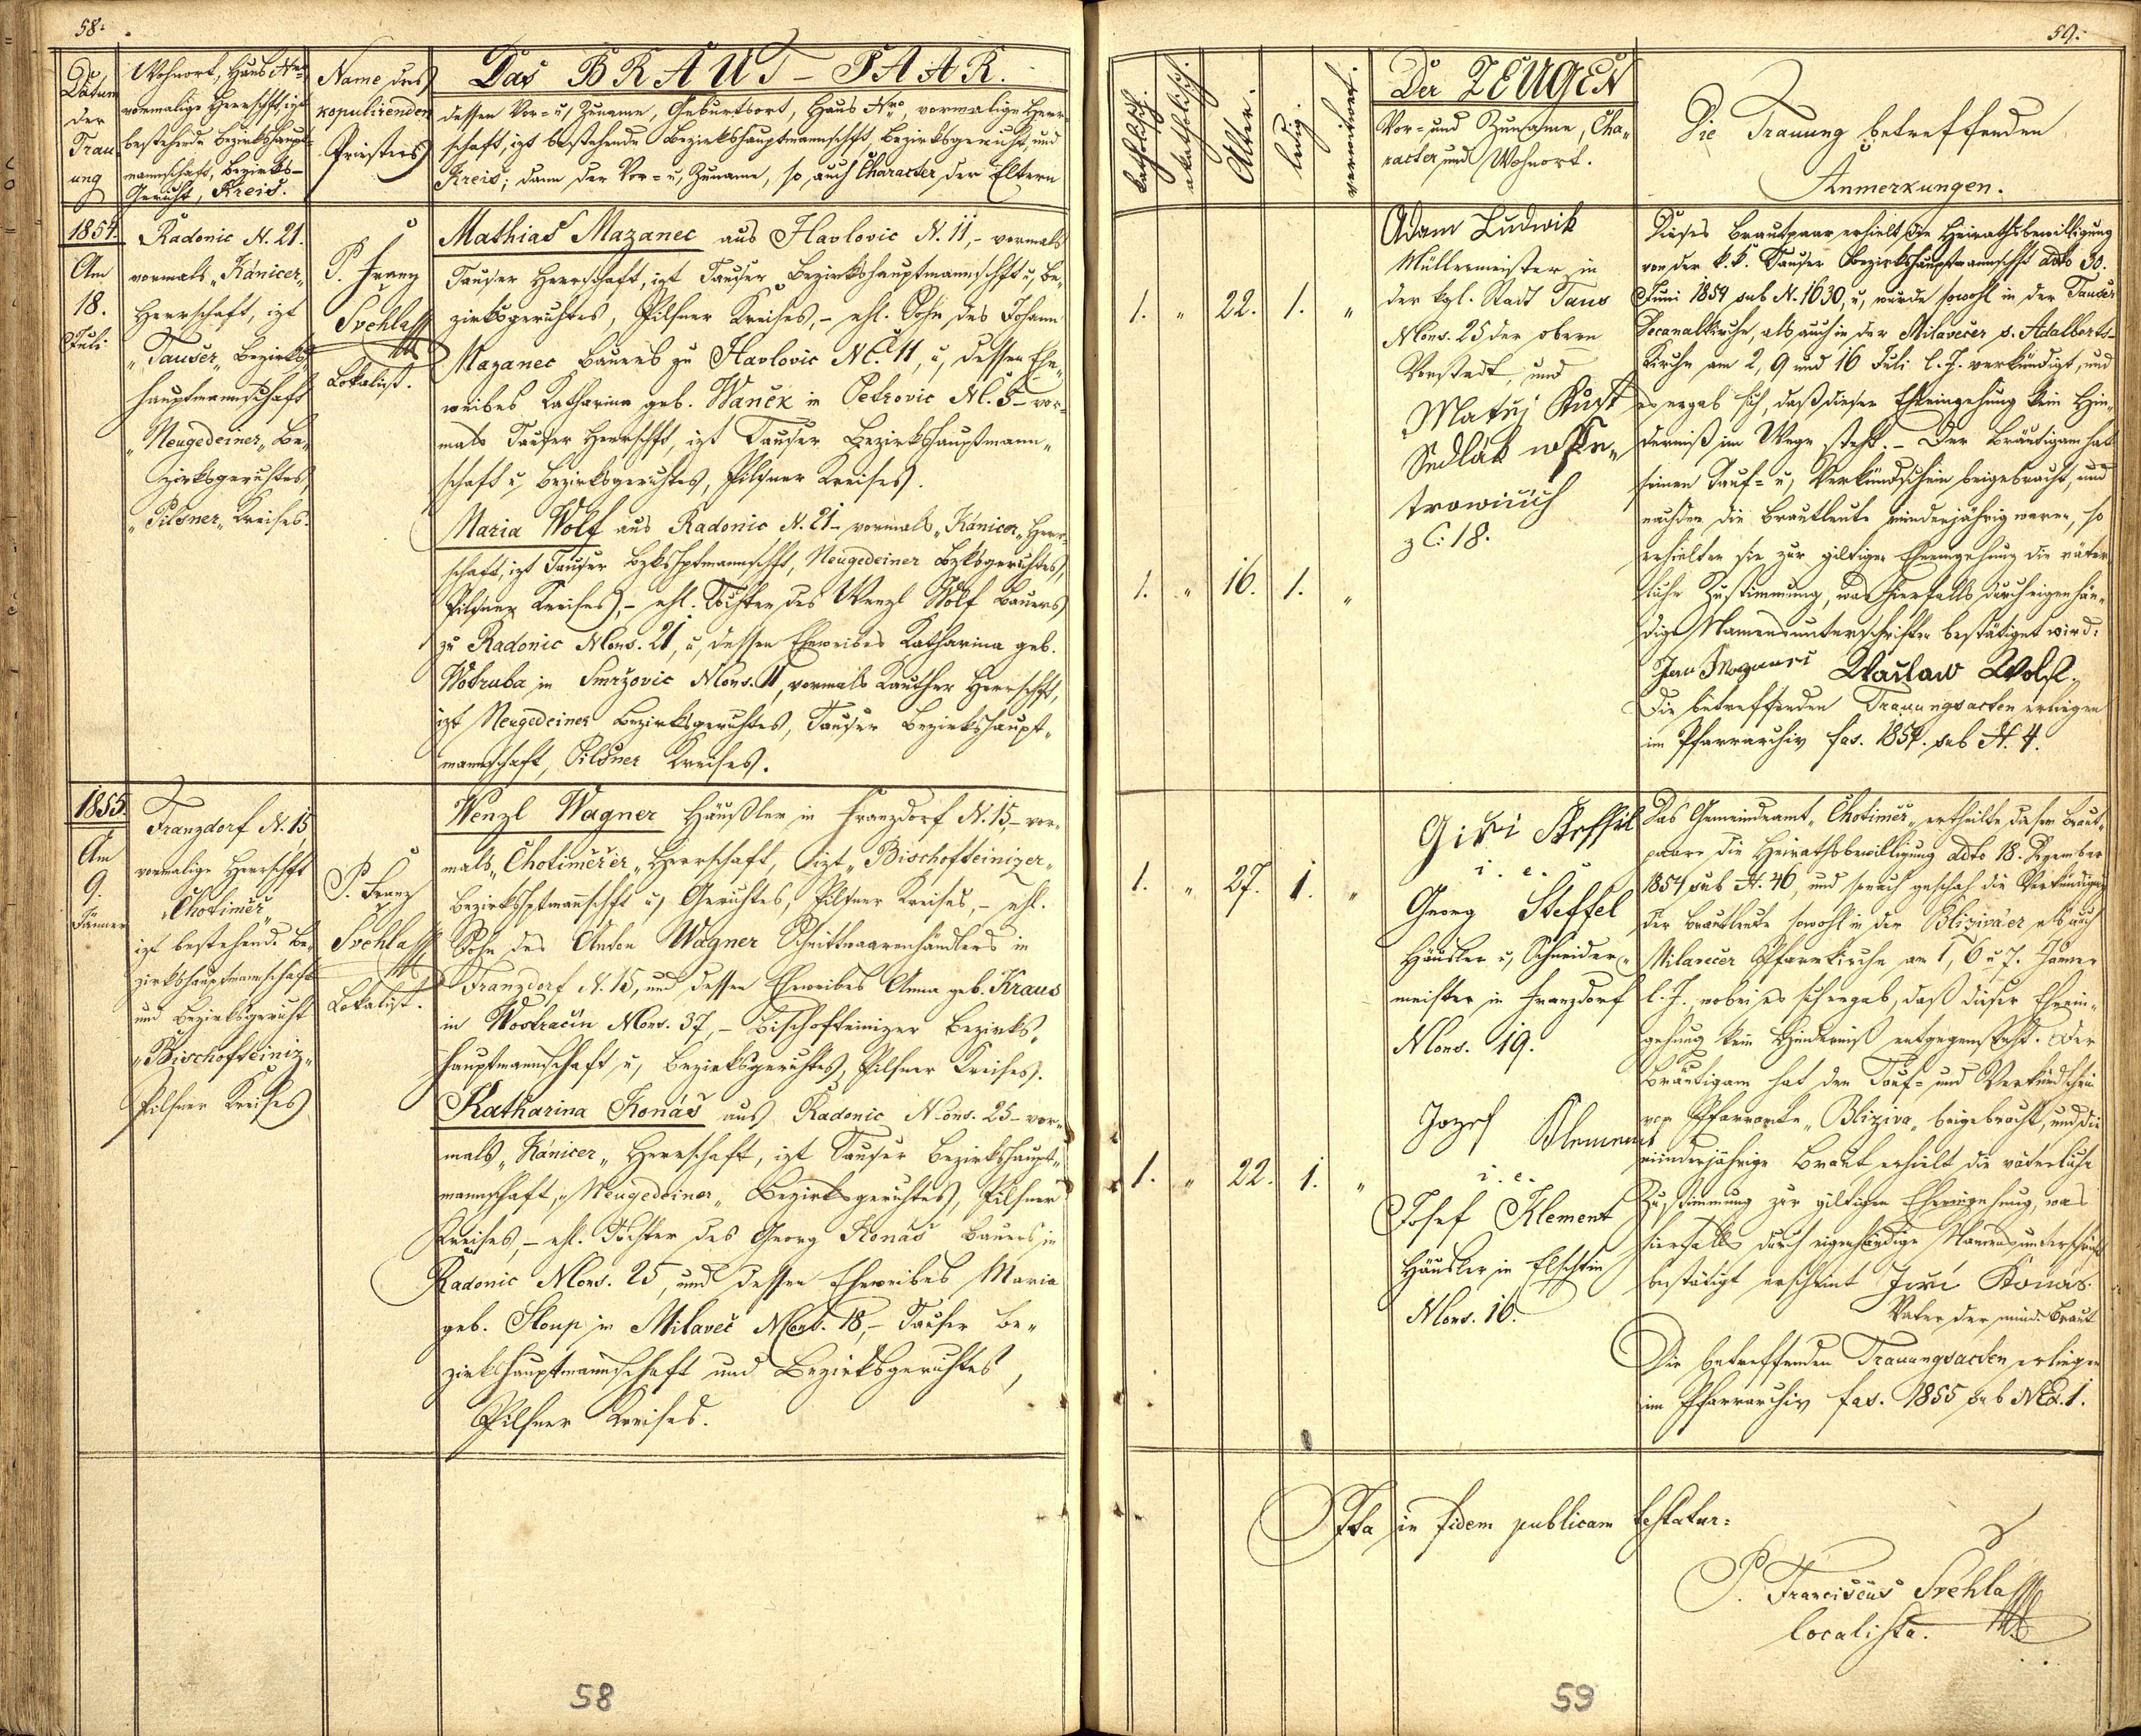 58.
Datum
der
Trau
ung
Wohnort, Haus Nro
vormalige Herrschft, izt
bestehende Bezirkshaupt
mannschaft, Bezirks-
Gericht, Kreis.
Name des
kopulirenden
Priesters
Das BRAUT-PAAR.
dessen Vor- u, Zuname, Geburtsort, Haus Nro, vormalige Herr-
schaft, izt bestehende Bezirkshauptmannschft, Bezirksgericht, und
Kreis; dann der Vor- u, Zuname, so auch Character der Eltern
1854.
Am
18.
Juli
Radonic N. 21.
vormals „Kánicer„
Herrschaft, izt
„Tauser„ Bezirks-
hauptmannschaft
„Neugedeiner„ Be-
zirksgerichtes,
„Pilsner„ Kreises.
P. Franz
Švehla
Lokalist.
Mathias Mazanec aus Havlovic N. 11, – vormals
Tauser Herrschaft, izt Tauser Bezirkshauptmannschft u, Be-
zirksgerichtes, Pilsner Kreises, – ehl. Sohn des Johann
Mazanec Bauers zu Havlovic NC. 11, u, dessen Ehe-
weibes Katharina geb. Wanĕk in Petrovic NC. 5 – vor-
mals Tauser Herrschft, izt Tauser Bezirkshauptmann-
schaft u, Bezirksgerichtes, Pilsner Kreises.
Maria Wolf aus Radonic N. 21 – vormals „Kánicer„ Herr-
schaft, izt Tauser Bzkshptmannschft, Neugedeiner Bzksgerichtes,
Pilsner Kreises, – ehl. Tochter des Wenzl Wolf Bauers
zu Radonic Nons. 21, u, dessen Eheweibes Katharina geb.
Wotruba in Smržovic Nons. 11, vormals Kauther Herrschft,
izt Neugedeiner Bezirksgerichtes, Tauser Bezirkshaupt-
mannschaft, Pilsner Kreises.
1855.
Am
9.
Jänner
Franzdorf N. 15
vormalige Herrschft
„Chotimĕř„
izt bestehende Be-
zirkshauptmannschaft
und Bezirksgericht
„Bischofteiniz„
Pilsner Kreises
P. Franz
Švehla
Lokalist.
Wenzl Wagner Häußler in Franzdorf N. 15, – vor-
mals „Chotimĕřer„ Herrschaft, izt „Bischofteinizer„
Bezirkshptmannschft u, Gerichtes, Pilsner Kreises, – ehl.
Sohn des Anton Wagner Schnittwaarenhändlers in
Franzdorf N. 15, und dessen Eheweibes Anna geb. Kraus
in Wostračín Nons. 37, – Bischofteinizer Bezirks-
hauptmannschaft u, Bezirksgerichtes, Pilsner Kreises.
Katharina Konáš aus Radonic Nons. 25 – vor-
mals „Kánicer„ Herrschaft, izt Tauser Bezirkshaupt-
mannschaft, „Neugedeiner„ Bezirksgerichtes, Pilsner
Kreises, – ehl. Tochter des Georg Konáš Bauers in
Radonic Nons. 25, und dessen Eheweibes Maria
geb. Sloup in Milaveč Nons. 18, – Tauser Be-
zirkshauptmannschaft und Bezirksgerichtes,
Pilsner Kreises.
58
59.
katholisch.
akatholisch.
Alter.
ledig.
verwitwet.
Der ZEUGEN
Vor- und Zuname, Cha-
racter und Wohnort.
Die Trauung betreffenden
Anmerkungen.
1. „ 22. 1. „
1. „ 16. 1. „
Adam Ludwik
Müllermeister in
der kgl. Stadt Taus
Nons. 25 der obern
Vorstadt, und
Matĕj Kust
Sedlák
z C: 18.
Dieses Brautpaar erhielt die Heirathsbewilligung
von der k.k. Tauser Bezirkshauptmannschft ddto 30.
Juni 1854 sub N. 1630, u, wurde sowohl in der Tauser
Decanalkirche, als auch in der Milavečer s. Adalberts-
Kirche am 2, 9 und 16 Juli l. J. verkündigt, und
es ergab sich, daß dieser Eheeingehung kein Hin-
derniß im Wege steht. – Der Bräutigam hat
seinen Tauf- u, Verkündschein beigebracht, und
nachdem die Brautleute minderjährig waren, so
erhielten sie zur giltigen Eheeingehung die väter-
liche Zustimmung, was hierfalls durch eigenhän-
dige Namensunterschriften bestätiget wird:
Jan Mazanec Waclaw Wolf.
Die betreffenden Trauungsacten erliegen
im Pfarrarchiv fas. 1854. sub N. 4.
1. „ 27. 1. „
1. „ 22. 1. „
Giři Steffel
i. e.
Georg Steffel
Häusler u, Schneider-
meister in Franzdorf
Nons. 19.
Jozef Klement
i. e.
Josef Klement
Häusler in Elschtin
Nons. 16.
Das Gemeindeamt „Chotimĕř„ ertheilte diesem Braut-
paare die Heirathsbewilligung ddto 18. Dezember
1854 sub N. 46, und sonach geschah die Verkündigung
der Brautleute sowohl in der Bliziváer als auch
Milavečer Pfarrkirche am 1, 6 u 7. Jänner
l. J. wobei es sich ergab, daß dieser Eheein-
gehung kein Hinderniß entgegensteht. Der
Bräutigam hat den Tauf- und Verkündschein
vom Pfarramte „Bliziva„ beigebracht, und die
minderjährige Braut erhielt die väterliche
Zustimmung zur giltigen Eheeingehung, was
hierfalls durch eigenhändige Namensunterschrift
bestätigt erscheint Jiří Konáš
Vater der mind. Braut
Die betreffenden Trauungsacten erliegen
im Pfarrarchiv fas. 1855 sub Nro. 1.
Ita in fidem publicam testatur:
P. Franciscus Švehla
localista.
59